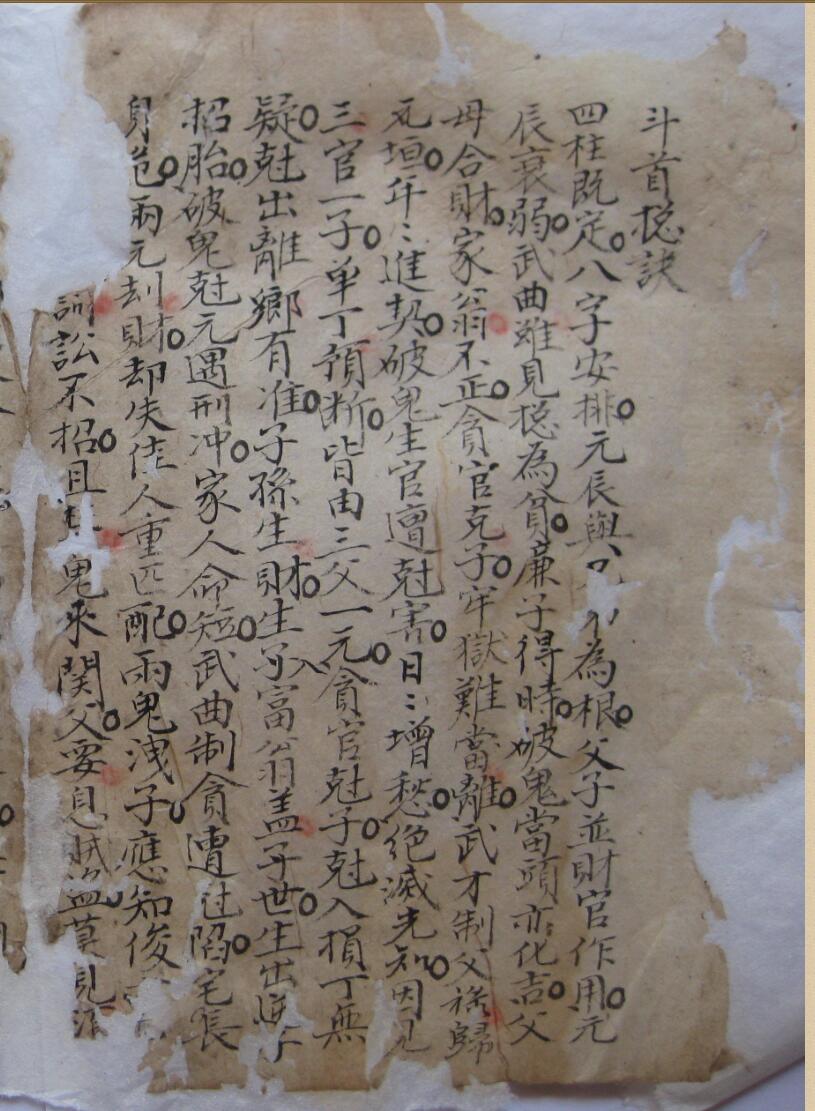 斗首捴訣
四柱既定。八字安排。元辰與為根。父子並財官作用。元
辰衰弱。武曲雖見捴為貧。廉子得時。破鬼當頭亦化吉。父
母合財。家翁不正。貪官克子。牢獄難當離。武才制父孫歸
元垣。年〻進契。破鬼生官遭尅害。日〻增愁。絕滅先知。因見
三官一子。单丁預断。皆由三父一元。貪官尅子。尅入損丁無
疑。尅出離鄉有准。子孫生財。生入富翁盖子世。生出逆子
招胎。破鬼尅元遇刑冲。家人命短。武曲制貪遭尅陷。宅長
身危。兩元刦財。却失佳人重匹配。兩鬼洩子。應知俊
訟不招。且鬼來関父。妥息賊盗莫見